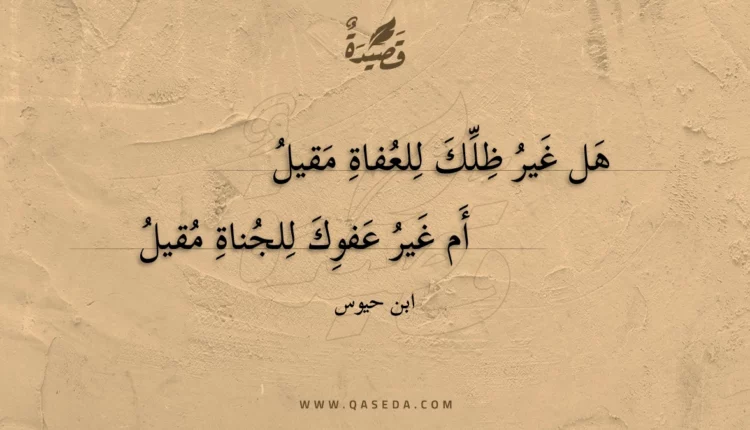 قَصِيدَةٌ
هَل غَيرُ ظِلِّكَ لِلعُفاةِ مَقيلُ
أَم غَيرُ عَفوِكَ لِلجُناةِ مُقيلُ
ابن حيوس
WWW.QASEDA.COM